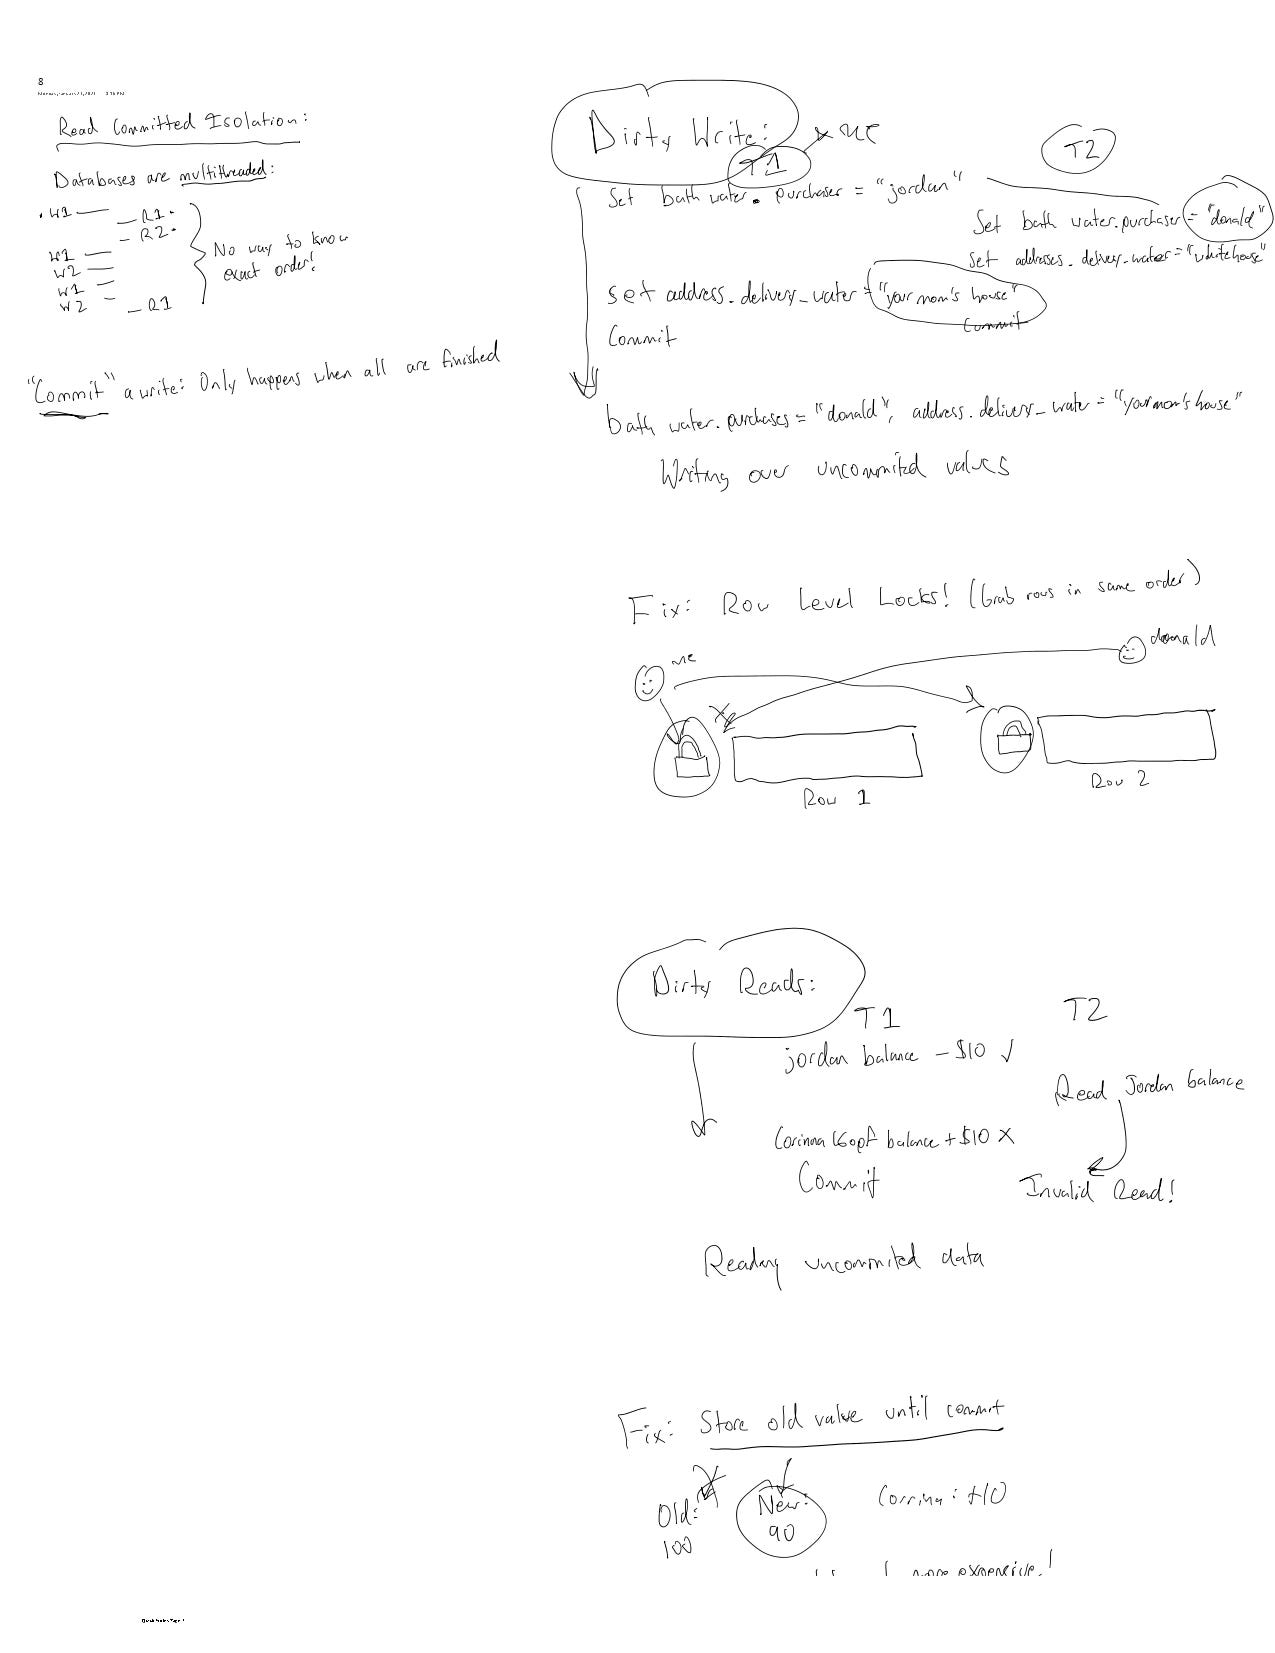 8
Read Committed Isolation:
Databases are multithreaded:
W1
R1
R2
W1
W2
W1
W2
R1
No way to know
exact order!
"Commit" a write: Only happens when all are finished
Dirty Write:
me
T1
T2
Set bath water. purchaser = "jordan"
Set bath water.purchaser = "donald"
Set addresses. delivery_water = "whitehouse"
Set address. delivery_water = "your mom's house"
Commit
Commit
bath water. purchases = "donald", address. delivery_water = "your mom's house"
Writing over uncommited values
Fix: Row Level Locks! (Grab rows in same order)
me
donald
Row 1
Row 2
Dirty Reads:
T1
T2
jordan balance - $10 ✓
Read Jordan balance
Corinna Kopf balance + $10 X
Commit
Invalid Read!
Reading uncommited data
Fix: Store old value until commit
Old:
100
New:
90
Corrina: +10
more expensive!
Quick Notes Page 1